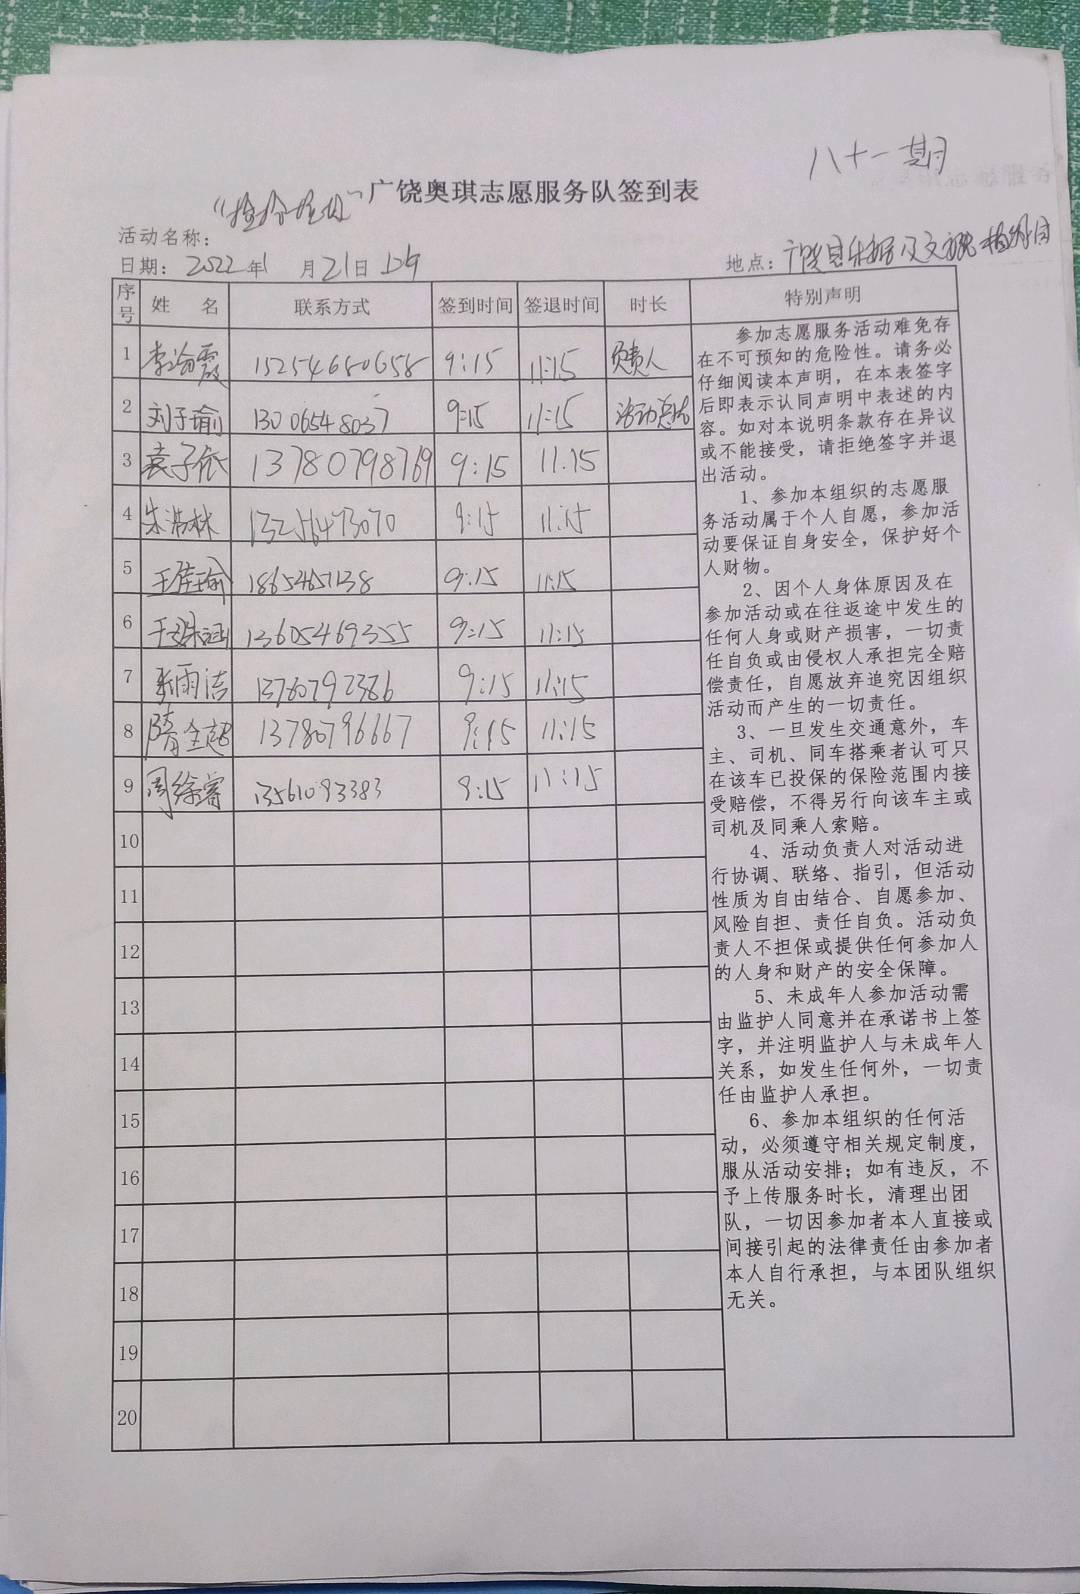 八十一期
广饶奥琪志愿服务队签到表
活动名称：
日期：2022年1月21日上午 地点：
序号 姓 名 联系方式 签到时间 签退时间 时长 特别声明
1 15254680658 9:15 11:15 负责人
2 刘子瑜 13006548037 9:15 11:15
3 袁子依 13780798769 9:15 11.15
4 朱浩林 13256473070 9:15 11:15
5 王佳瑜 18654651138 9:15 11:15
6 13605469355 9:15 11:15
7 张雨洁 13780792386 9:15 11:15
8 隋全超 13780796667 9:15 11:15
9 周徐睿 13561093383 9:15 11:15
10
11
12
13
14
15
16
17
18
19
20
参加志愿服务活动难免存
在不可预知的危险性。请务必
仔细阅读本声明，在本表签字
后即表示认同声明中表述的内
容。如对本说明条款存在异议
或不能接受，请拒绝签字并退
出活动。
1、参加本组织的志愿服
务活动属于个人自愿，参加活
动要保证自身安全，保护好个
人财物。
2、因个人身体原因及在
参加活动或在往返途中发生的
任何人身或财产损害，一切责
任自负或由侵权人承担完全赔
偿责任，自愿放弃追究因组织
活动而产生的一切责任。
3、一旦发生交通意外，车
主、司机、同车搭乘者认可只
在该车已投保的保险范围内接
受赔偿，不得另行向该车主或
司机及同乘人索赔。
4、活动负责人对活动进
行协调、联络、指引，但活动
性质为自由结合、自愿参加、
风险自担、责任自负。活动负
责人不担保或提供任何参加人
的人身和财产的安全保障。
5、未成年人参加活动需
由监护人同意并在承诺书上签
字，并注明监护人与未成年人
关系，如发生任何外，一切责
任由监护人承担。
6、参加本组织的任何活
动，必须遵守相关规定制度，
服从活动安排；如有违反，不
予上传服务时长，清理出团
队，一切因参加者本人直接或
间接引起的法律责任由参加者
本人自行承担，与本团队组织
无关。